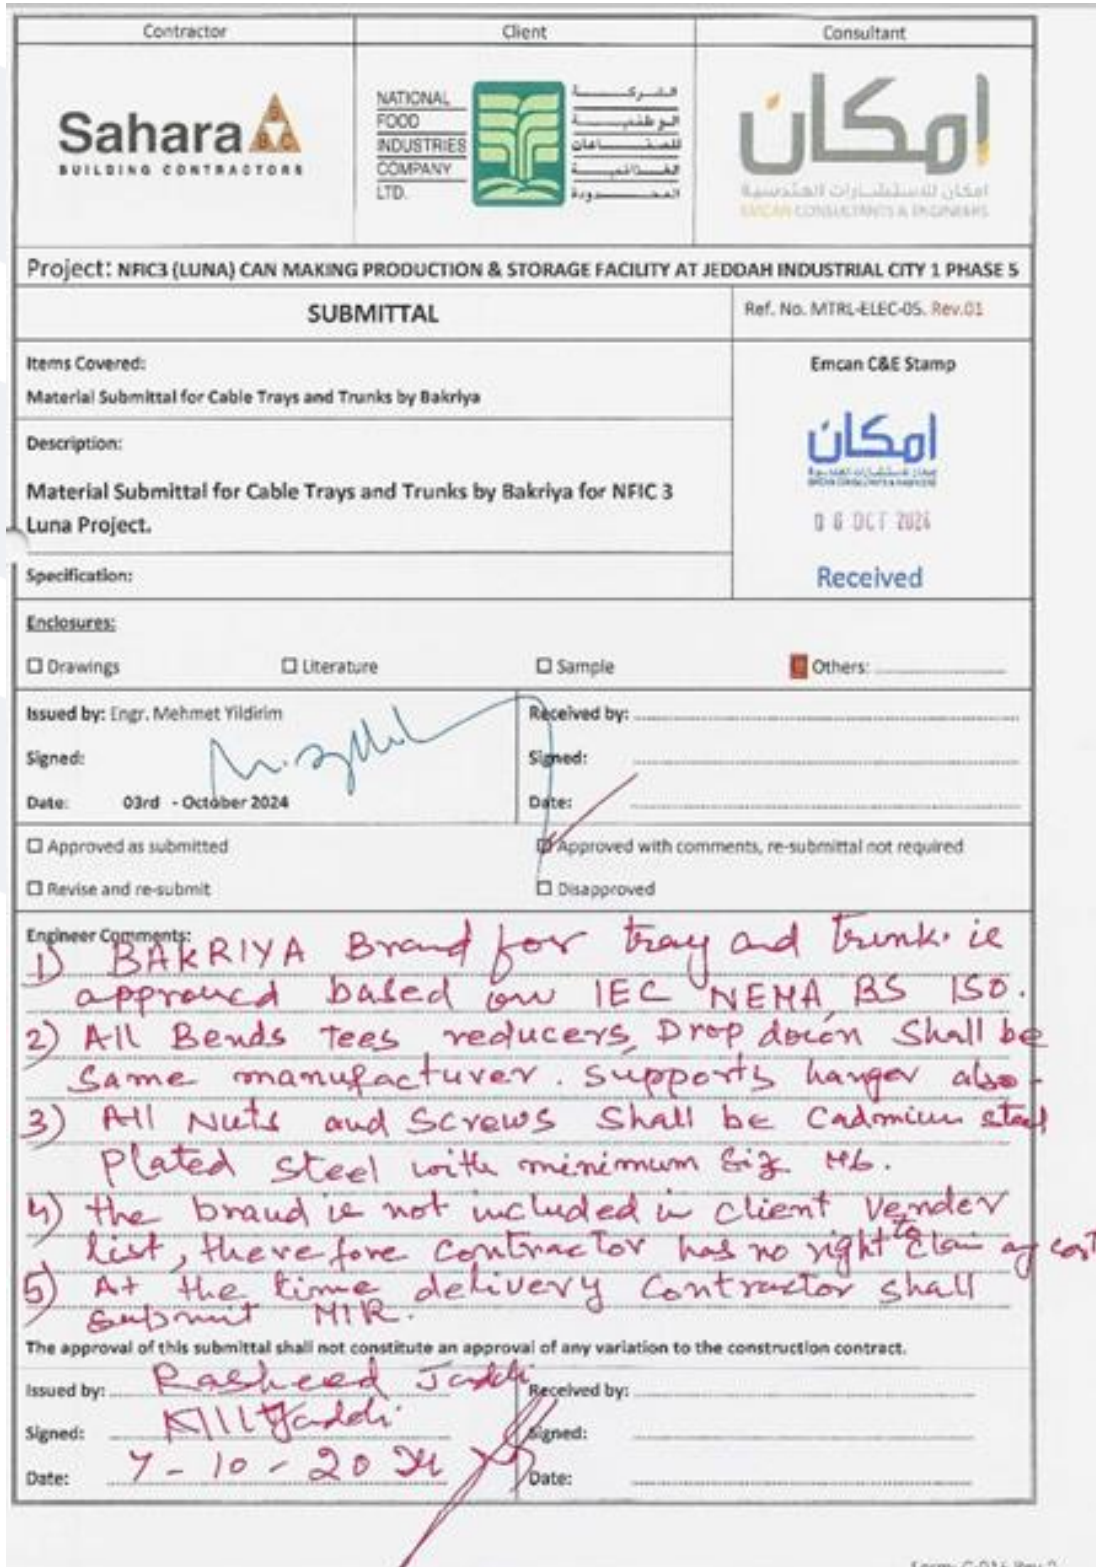 Contractor
Client
Consultant
Sahara
SBC
BUILDING CONTRACTORS
NATIONAL
FOOD
INDUSTRIES
COMPANY
LTD.
الشركة
الوطنية
للصناعات
الغذائية
المحدودة
امكان
امكان للاستشارات الهندسية
EMCAN CONSULTANTS & ENGINEERS
Project: NFIC3 (LUNA) CAN MAKING PRODUCTION & STORAGE FACILITY AT JEDDAH INDUSTRIAL CITY 1 PHASE 5
SUBMITTAL
Ref. No. MTRL-ELEC-05. Rev.01
Items Covered:
Material Submittal for Cable Trays and Trunks by Bakriya
Emcan C&E Stamp
امكان
06 OCT 2024
Received
Description:
Material Submittal for Cable Trays and Trunks by Bakriya for NFIC 3
Luna Project.
Specification:
Enclosures:
Drawings Literature Sample Others:
Issued by: Engr. Mehmet Yildirim
Signed:
Date: 03rd - October 2024
Received by:
Signed:
Date:
Approved as submitted
Approved with comments, re-submittal not required
Revise and re-submit
Disapproved
Engineer Comments:
1) BAKRIYA Brand for tray and trunk is
approved based on IEC NEMA BS ISO.
2) All Bends Tees reducers, Drop down Shall be
Same manufacturer. Supports hanger also -
3) All Nuts and Screws Shall be Cadmium steel
Plated Steel with minimum Size M6.
4) the brand is not included in client Vender
list, therefore Contractor has no right to claim any cost
5) At the time delivery Contractor shall
submit MIR.
The approval of this submittal shall not constitute an approval of any variation to the construction contract.
Issued by: Rasheed Jaddi
Signed:
Date: 7-10-2024
Received by:
Signed:
Date: